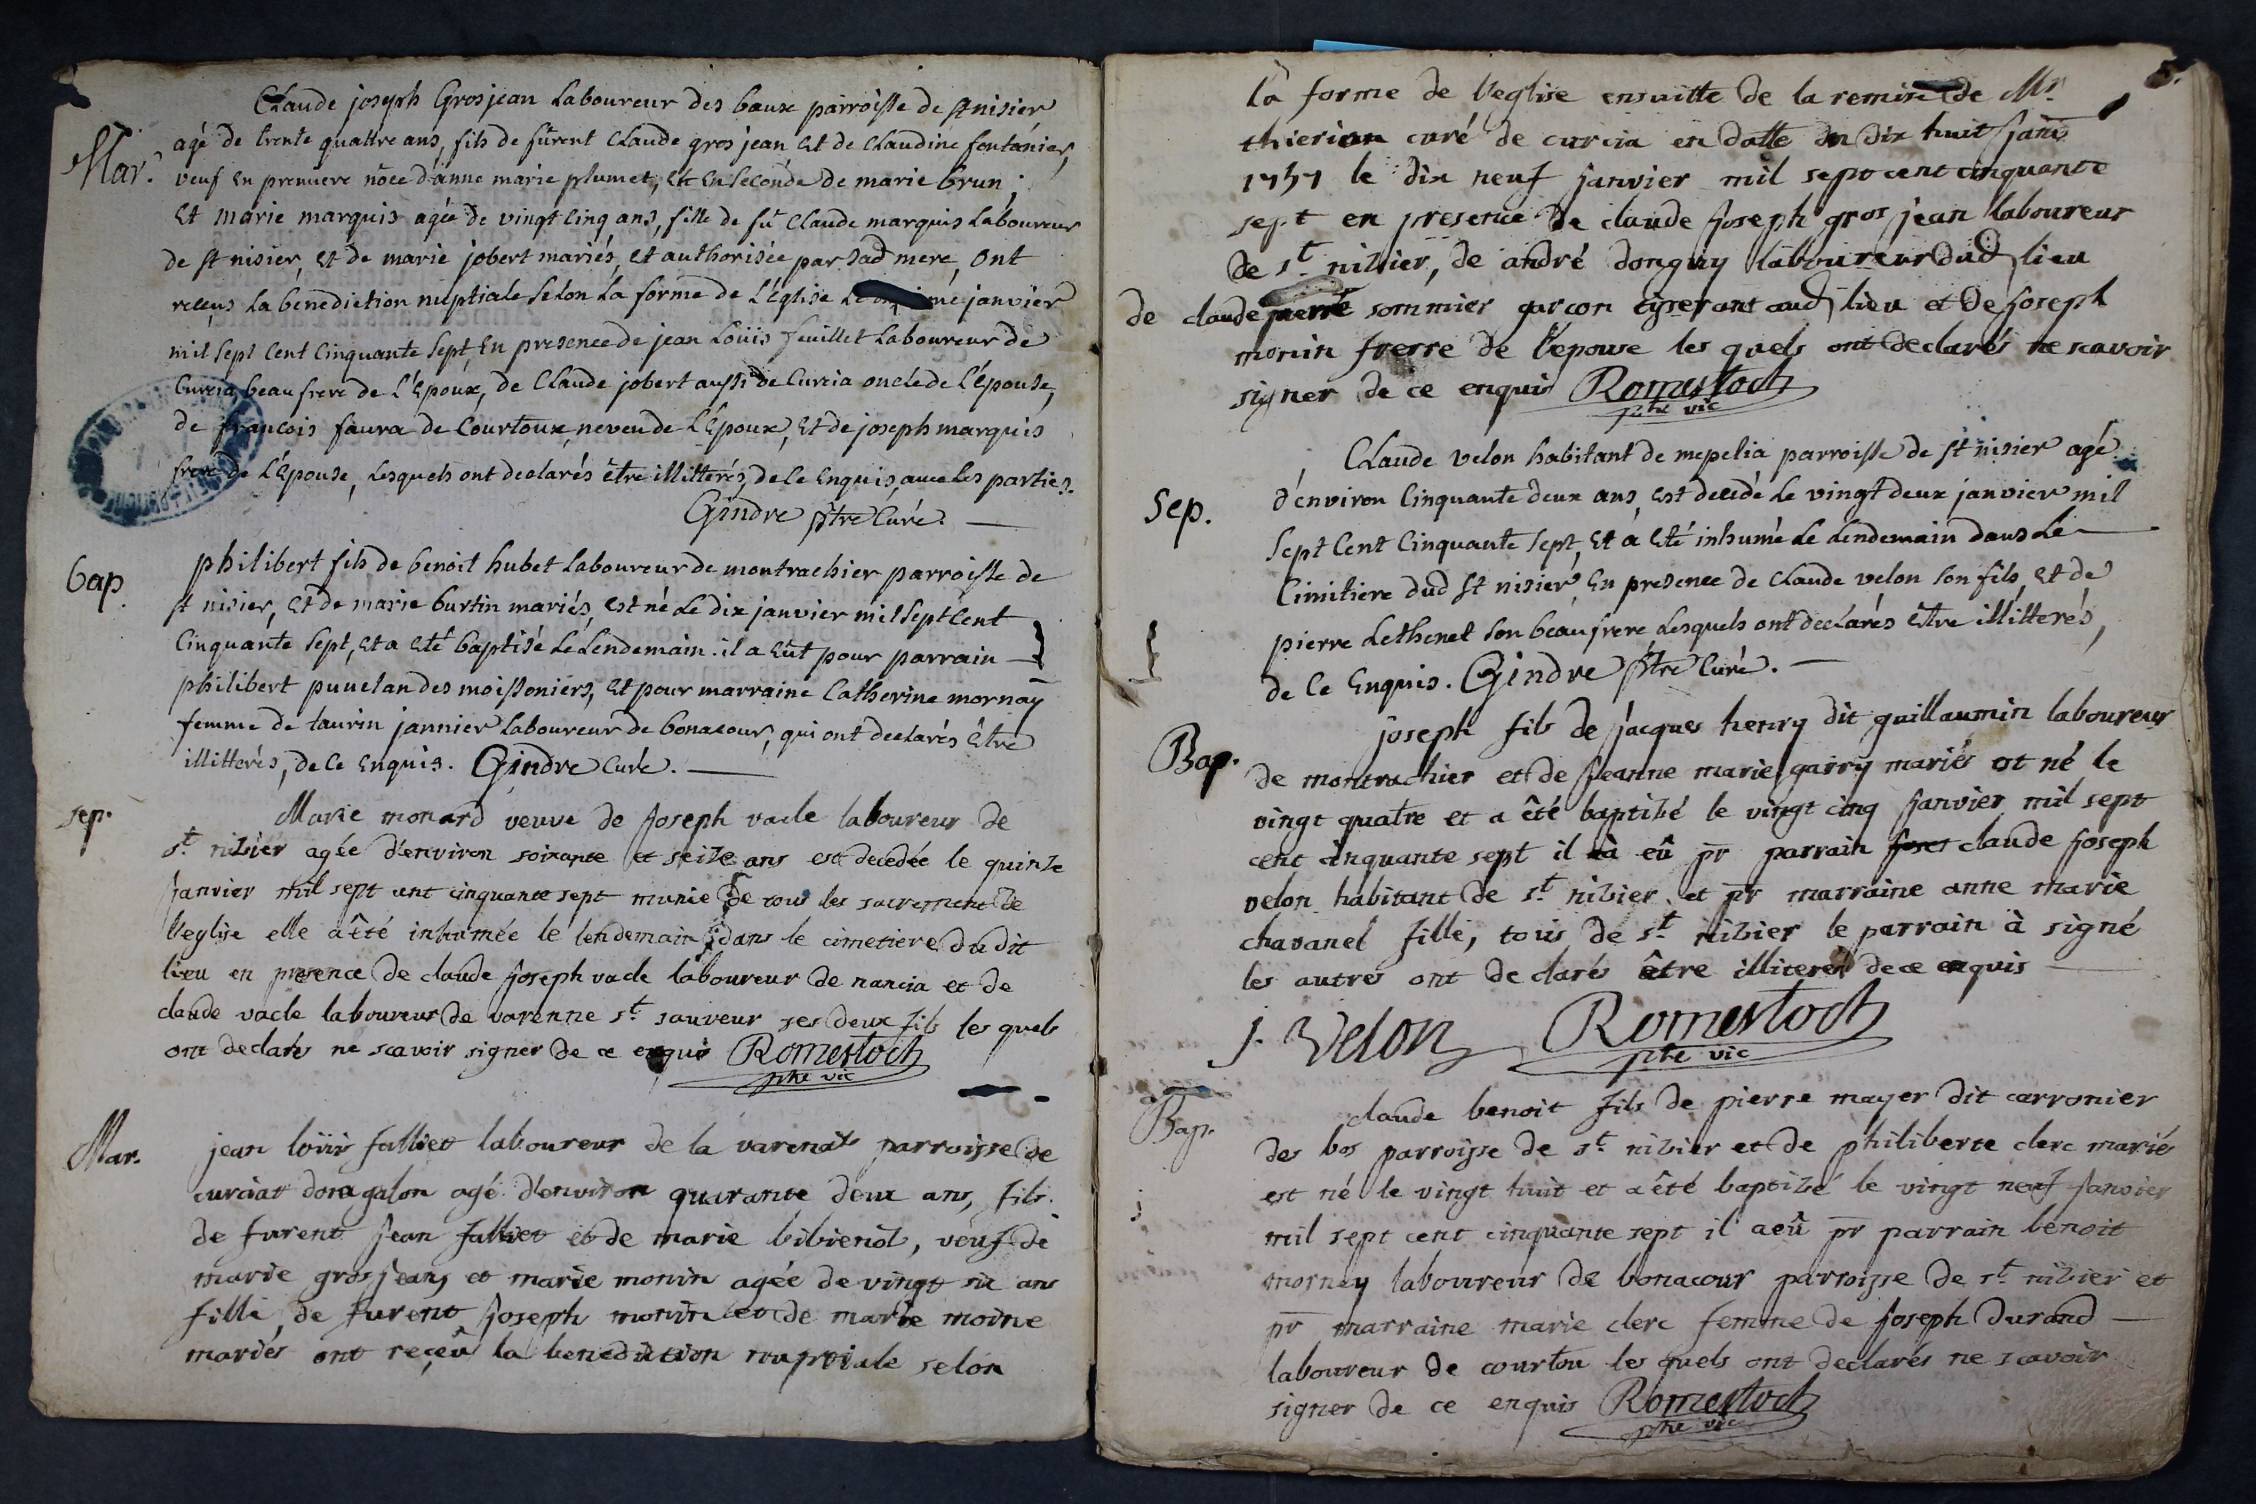 Mar.
Claude joseph Grosjean Laboureur des baux parroisse de st nisier
agé de trente quattre ans, fils de fûrent Claude gros jean Et de Claudine fontanier,
veuf En premiere nôce d'anne marie plumet, Et En seconde de marie brun;
Et marie marquis agée de vingt Cinq ans, fille de fû Claude marquis Laboureur
de st nisier, Et de marie jobert mariés, Et authorisée par sad mere, Ont
reçeus La benediction nuptiale selon La forme de L'église Le janvier
mil sept Cent Cinquante sept, En presence de jean Loüis feuillet Laboureur de
Curcia beau frere de L'Epoux, de Claude jobert aussi de Curcia oncle de L'épouse,
de francois faura de Courtoux neveu de L'Epoux, Et de joseph marquis
frere de L'Epouse, Lesquels ont declarés être illitterés, de Ce Enquis, avec Les parties.
Gindre ptre Curé.
bap
philibert fils de benoit hubet Laboureur de montrachier parroisse de
st nisier, Et de marie burtin mariés, est né Le dix janvier mil sept Cent
Cinquante sept, Et a Eté baptisé Le Lendemain. il a Eût pour parrain
philibert puvelan des moissoniers, Et pour marraine Catherine mornay
femme de taurin jannier Laboureur de bonacour, qui ont declarés Être
illitterés, de Ce Enquis. Gindre Curé.
sep.
Marie monard veuve de Joseph vacle laboureur de
st. nizier agée d'environ soixante et seize ans est decedée le quinze
Janvier mil sept cent cinquante sept munie de tous les sacrement de
l'eglise elle a êté inhumée le lendemain dans le cimetiere du dit
lieu en presence de claude Joseph vacle laboureur de nancia et de
claude vacle laboureur de varenne st. sauveur ses deux fils les quels
ont declarés ne scavoir signer de ce enquis Romestoch
ptre vic
Mar.
jean loüis falliet laboureur de la varenat parroisse de
curciat dongalon agé d'environ quarante deux ans, fils
de furent Jean falliet et de marie bibienot, veuf de
marie gros jean, et marie monin agée de vingt six ans
fille de furent Joseph monin et de marie moine
mariés ont reçeû la benediction nuptiale selon
la forme de l'eglise ensuitte de la remise de Mr.
thierion curé de curcia en datte du dix huit janv
1757 le dix neuf janvier mil sept cent cinquante
sept en presence de claude Joseph gros jean laboureur
de st. nizier, de andré donguy laboureur dud lieu
de claude pierre sommier garcon tisserant aud lieu et de Joseph
monin frerre de l'epouse les quels ont declarés ne scavoir
signer de ce enquis Romestoch
ptre vic
Sep.
Claude velon habitant de mepelia parroisse de st nisier agé
d'environ Cinquante deux ans, est decedé Le vingt deux janvier mil
sept Cent Cinquante sept, Et a Eté inhumé Le Lendemain dans Le
Cimitiere dud st nisier, En presence de Claude velon son fils, Et de
pierre Lethenet son beau frere Lesquels ont declarés Être illitterés,
de Ce Enquis. Gindre ptre Curé.
Bap.
joseph fils de jacques henry dit guillaumin laboureur
de montrachier et de Jeanne marie garry mariés est né le
vingt quatre et a êté baptizé le vingt cinq Janvier mil sept
cent cinquante sept il a eû pr parrain claude Joseph
velon habitant de st. nizier et pr marraine anne marie
chavanel fille, tous de st. nizier le parrain à signé
les autres ont declarés être illiterés de ce enquis
J. Velon Romestoch
ptre vic
Bap.
claude benoit fils de pierre mayer dit carronier
des bos parroisse de st. nizier et de philiberte clerc mariés
est né le vingt huit et a êté baptizé le vingt neuf Janvier
mil sept cent cinquante sept il a eû pr parrain benoit
morney laboureur de bonacour parroisse de st. nizier et
pr marraine marie clerc femme de Joseph durand
laboureur de courtou les quels ont declarés ne scavoir
signer de ce enquis Romestoch
ptre vic